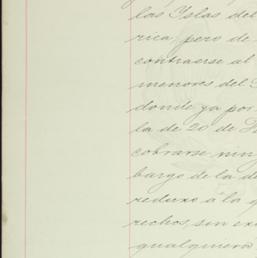 las Islas del
rica, pero de
contraerse al
menores del
donde ya por
la de 20 de
cobrarse nin
bargo de la de
reduxo á la q
rechos, sin ex
qualquiera